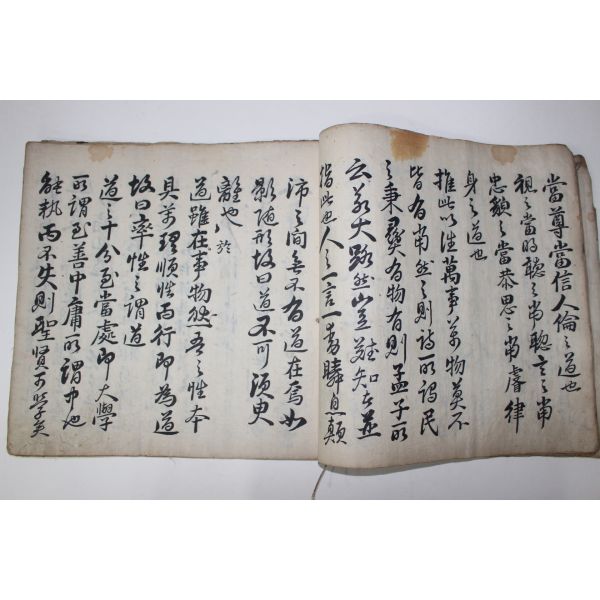 當尊當信人倫之道也
視之當明聽之當聰言之當
忠貌之當恭思之當睿律
身之道也
推此以往萬事萬物莫不
皆有當然之則詩所謂民
之秉彛有物有則孟子所
云若大路然豈難知者並
指此也人之一言一嘿瞬息顛
沛之間無不有道在焉如
影随形故曰道不可須臾
離也 於
道雖在事物然吾之性本
具萬理順性而行即為道
故曰率性之謂道
道之十分至當處即大學
所謂至善中庸所謂中也
能執而不失則聖賢可學矣